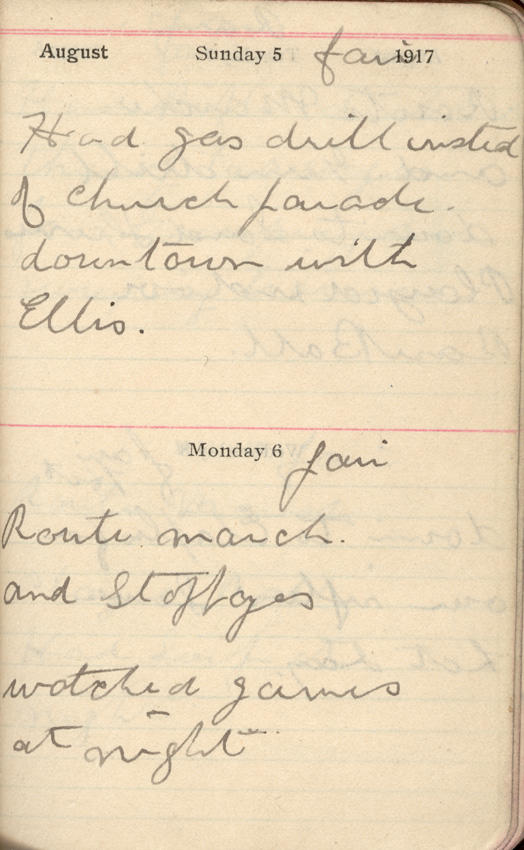 August Sunday 5 fair 1917
Had gas drill insted
of church parade.
downtown with
Ellis.
Monday 6 fair
Route march.
and Stoppges
watched games
at night